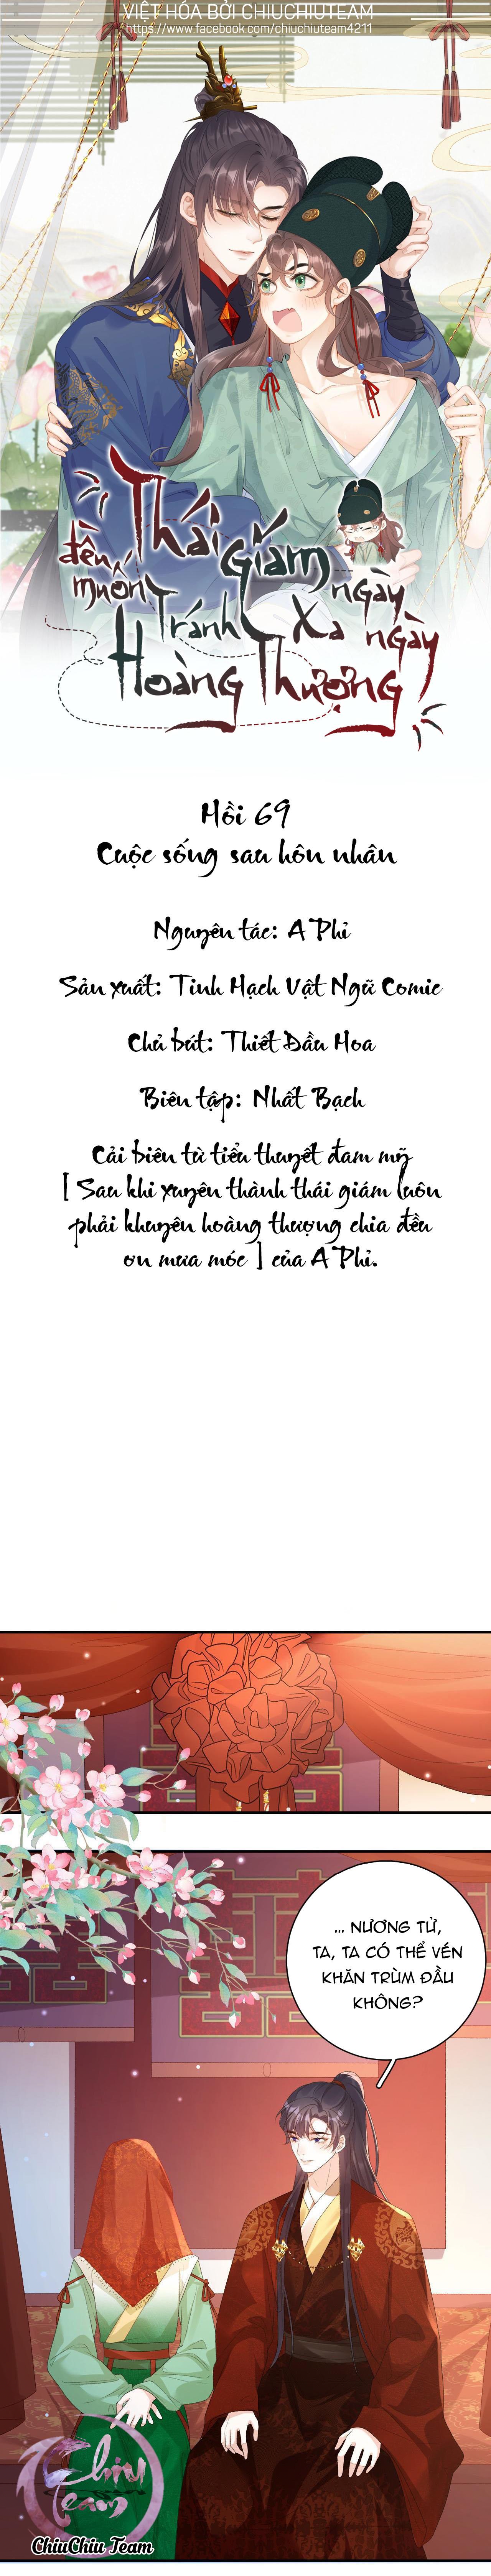 VIỆT HÓA BỞI CHIUCHIUTEAM
https://www.facebook.com/chiuchiuteam4211
Thái giám ngày
đều muốn Tránh Xa ngày
Hoàng Thượng
Hồi 69
Cuộc sống sau hôn nhân
Nguyên tác: A Phỉ
Sản xuất: Tinh Hạch Vật Ngũ Comic
Chủ bút: Thiết Đầu Hoa
Biên tập: Nhất Bạch
Cải biên từ tiểu thuyết đam mỹ
[ Sau khi xuyên thành thái giám luôn
phải khuyên hoàng thượng chia đều
ơn mưa móc ] của A Phỉ.
... NƯƠNG TỬ,
TA, TA CÓ THỂ VÉN
KHĂN TRÙM ĐẦU
KHÔNG?
Chiu
Team
ChiuChiu Team